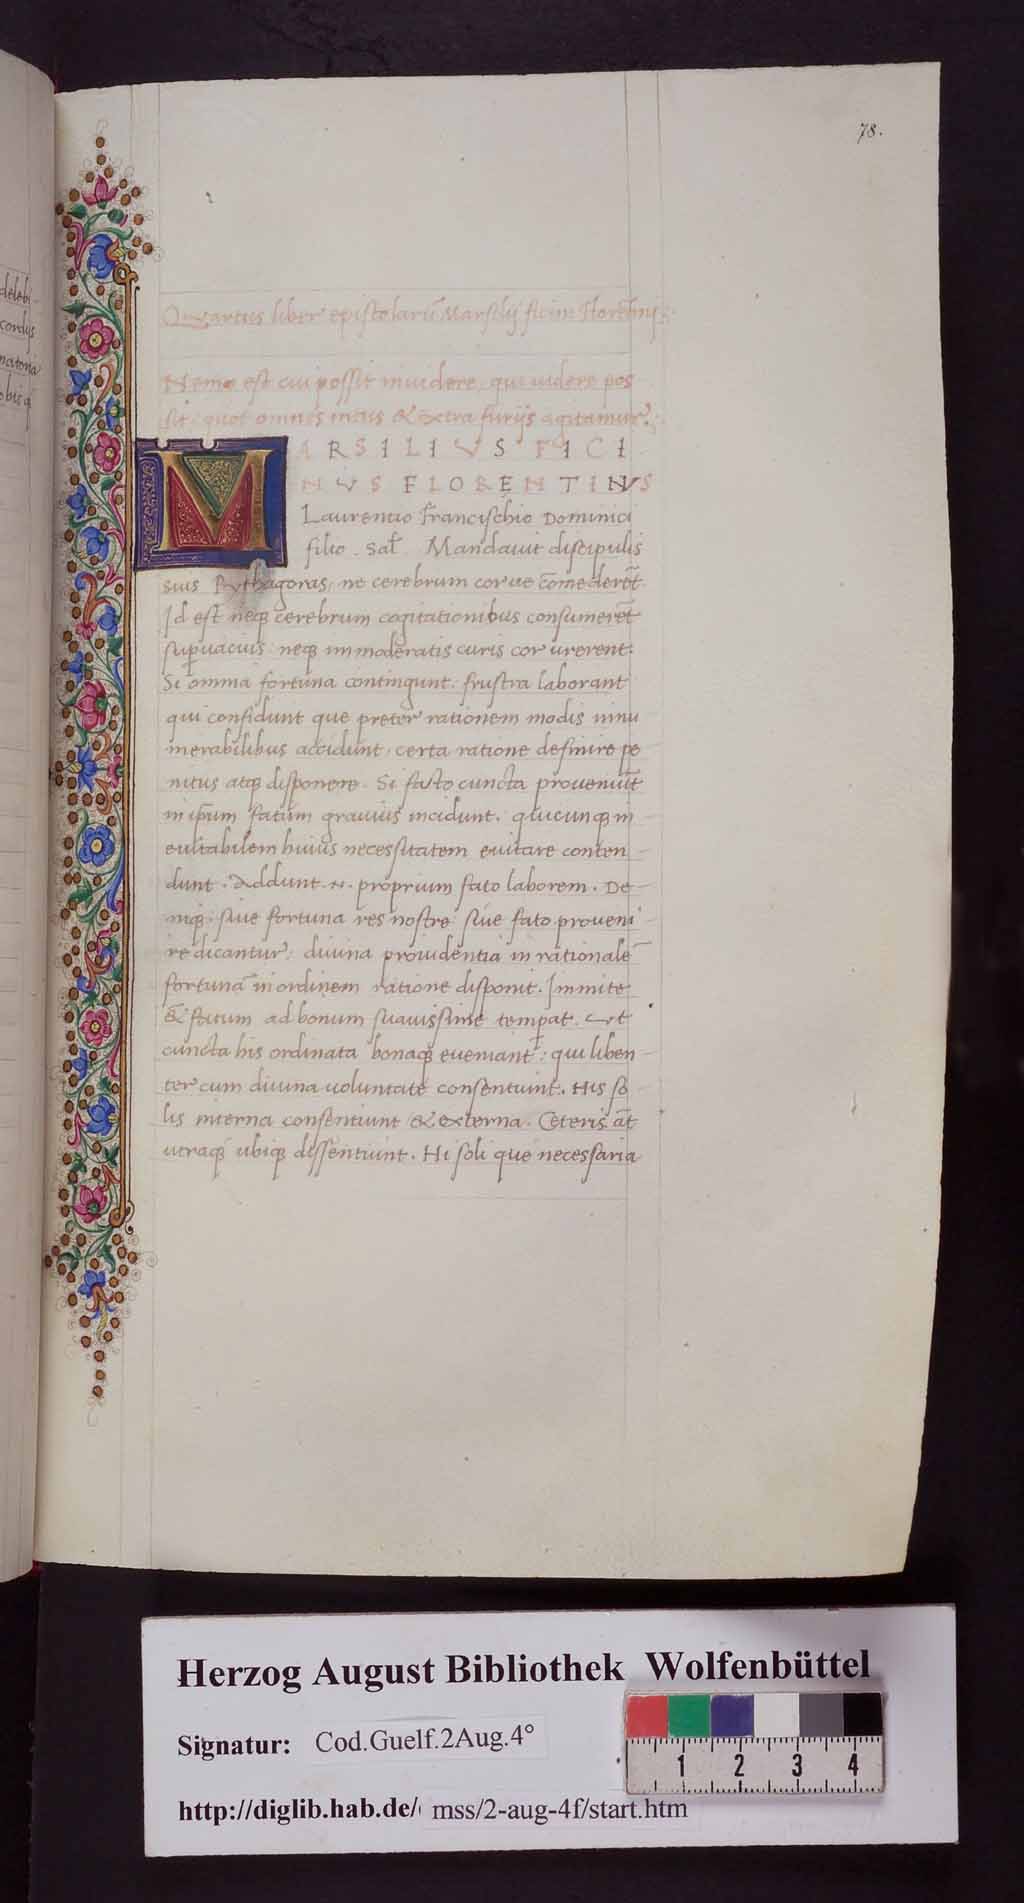 78.
Quartus liber epistolarū Marsilij ficini Florētini:
Nemo est cui possit inuidere, qui uidere pos
sit: quot omnes intus & extra furijs agitamur?
MARSILIVS FICI
NVS FLORENTINVS
Laurentio Francischio Dominici
filio. Sal̄. Mandauit discipulis
suis Pythagoras, ne cerebrum cor ue comēderēt.
Id est neq; cerebrum cogitationibus consumerēt
supuacuis: neq; immoderatis curis cor urerent.
Si omnia fortuna contingunt: frustra laborant
qui confidunt que preter rationem modis innu
merabilibus accidunt: certa ratione definire pe
nitus atq; disponere. Si fato cuncta proueniūt
in ip̄um fatum grauius incidunt: quicunq; in
euitabilem huius necessitatem euitare conten
dunt. Addunt .n. proprium fato laborem. De
niq; siue fortuna res nostre: siue fato proueni
re dicantur: diuina prouidentia inrationalē
fortunā in ordinem ratione disponit. Immite
& fatum ad bonum suauissime temperat. Vt
cuncta his ordinata bonaq; eueniant: qui liben
ter cum diuina uoluntate consentiunt. His so
lis interna consentiunt & externa. Ceteris āt
utraq; ubiq; dissentiunt. Hi soli que necessaria
delebi
cordis
matoria
obis q
Herzog August Bibliothek Wolfenbüttel
Signatur: Cod.Guelf.2Aug.4°
1 2 3 4
http://diglib.hab.de/ mss/2-aug-4f/start.htm